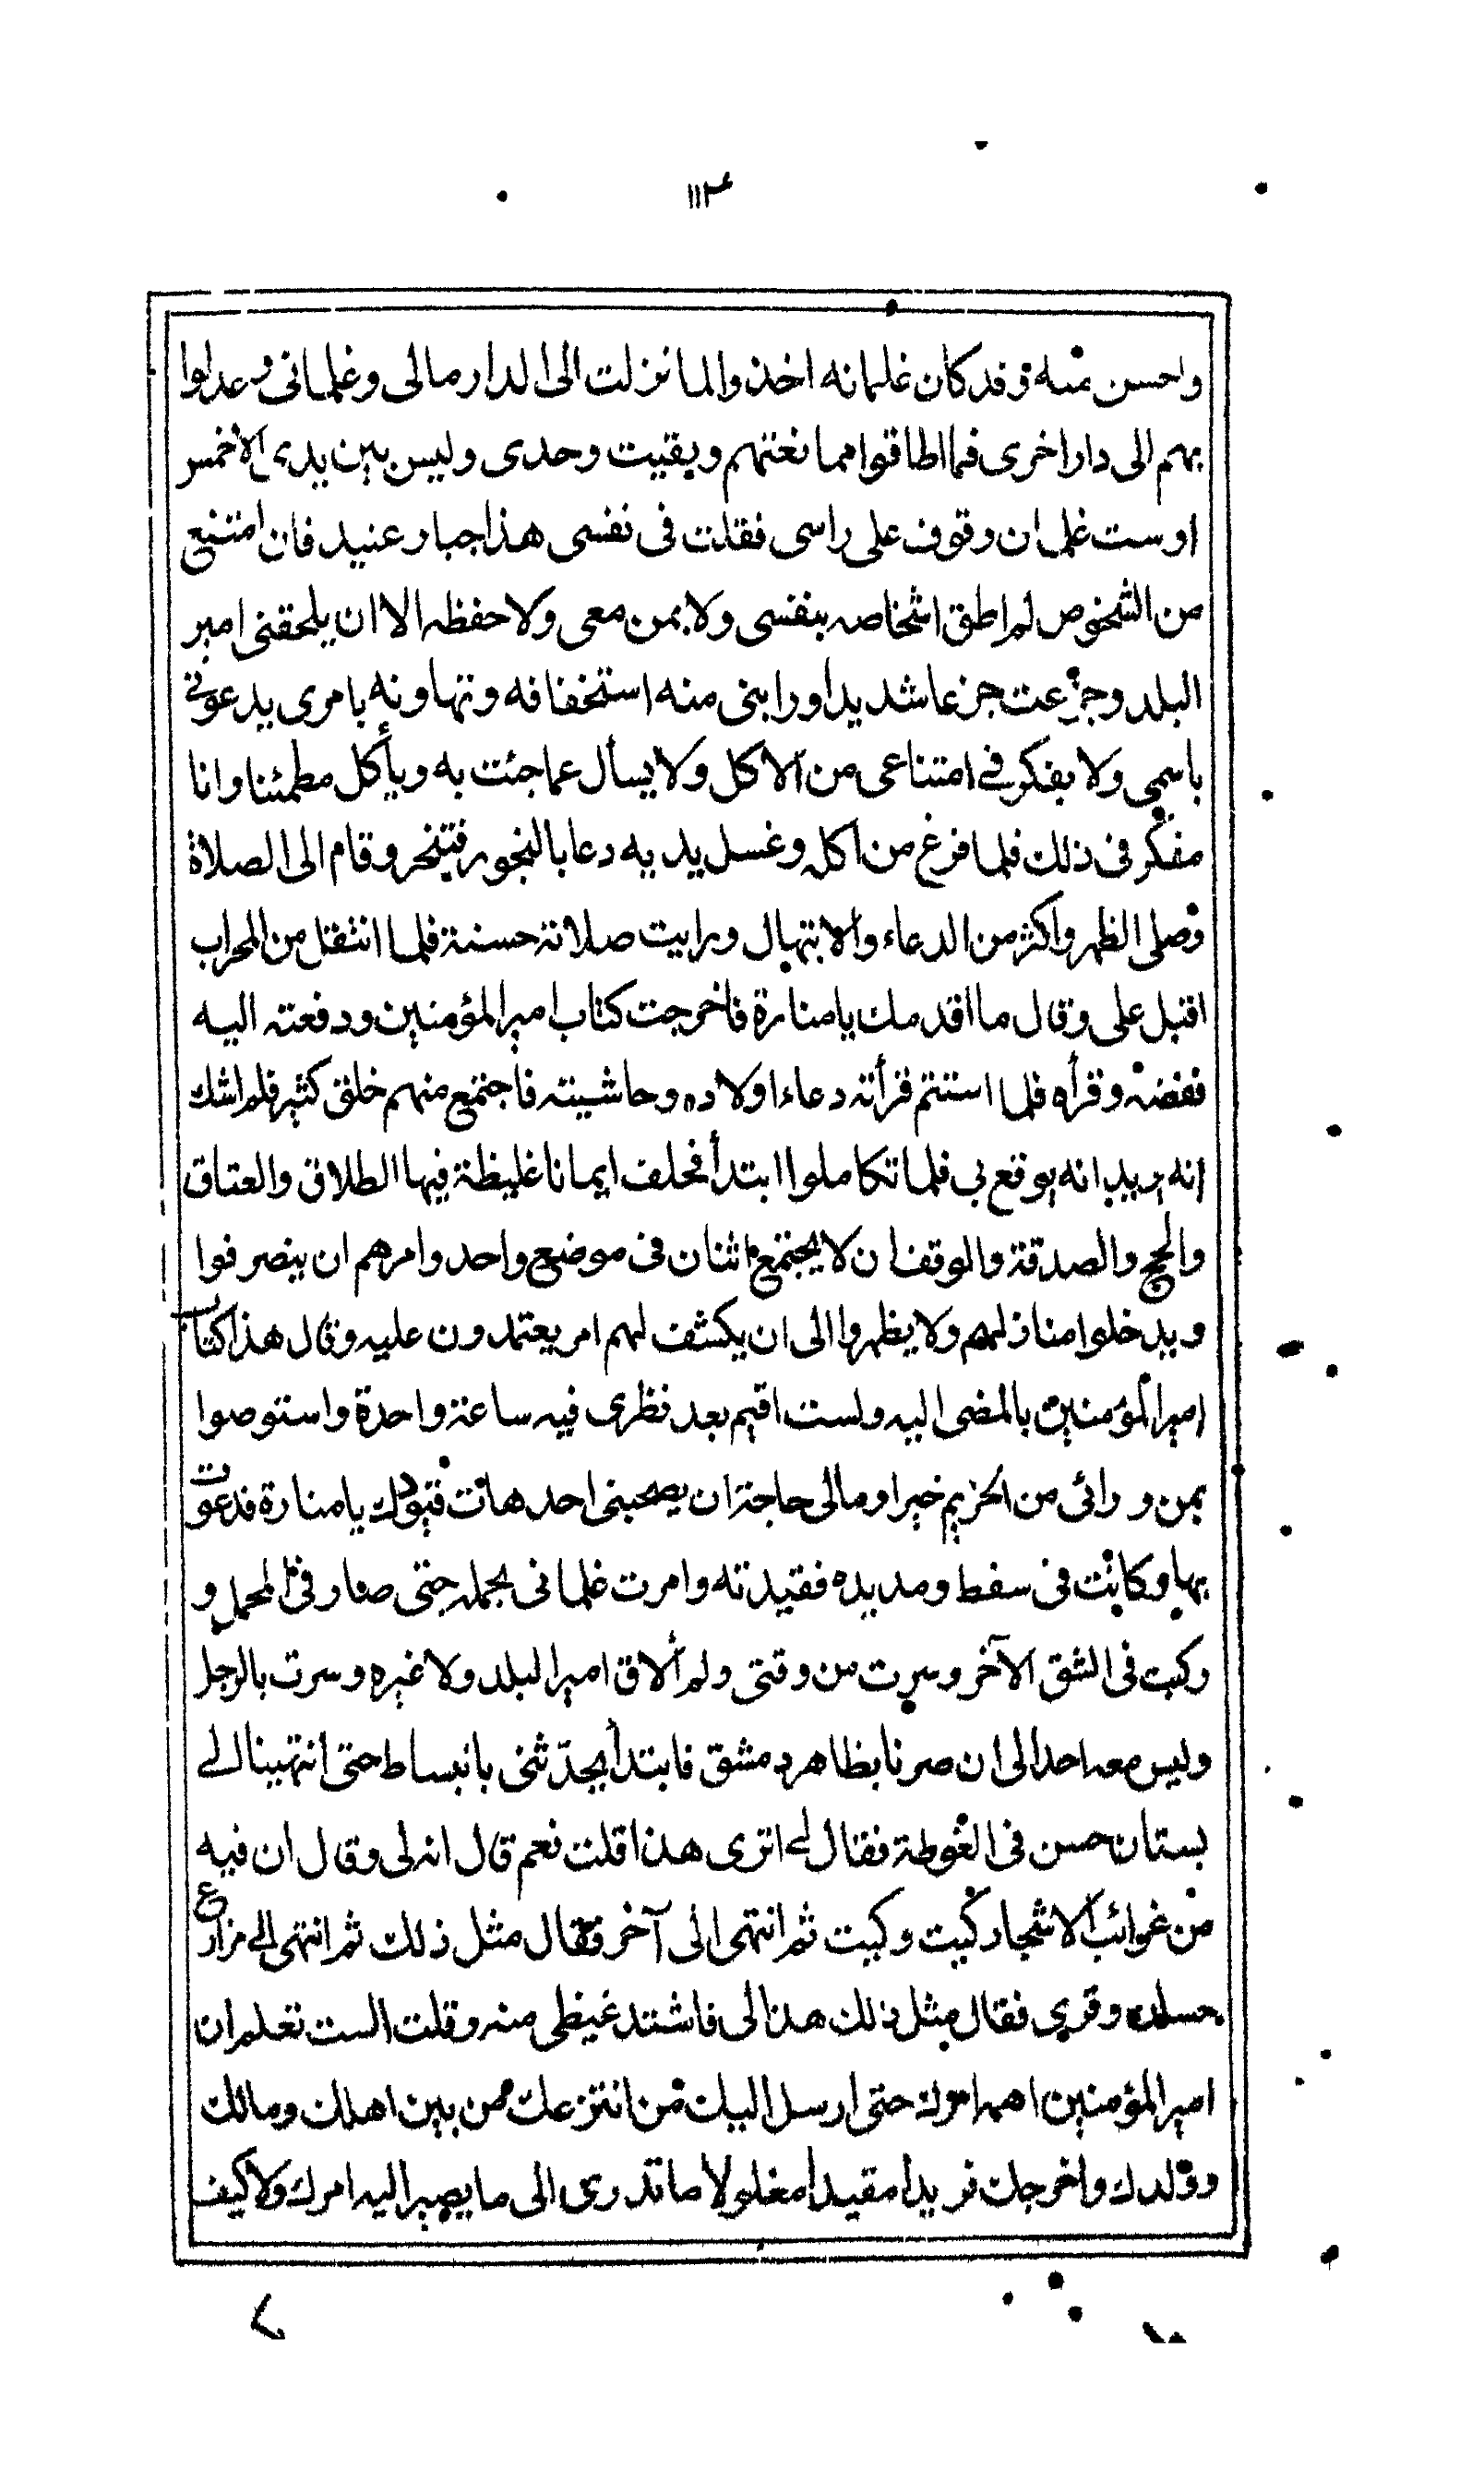 ١١٤
واحسن منه وقد كان غلمانه اخذوا لما نزلت الى الدار مالى وغلمانى وعدلوا
بهم الى دار اخرى فما اطاقوا ممانعتهم وبقيت وحدى وليس بين يدى الا خمس
او ست غلمان وقوف على راسى فقلت فى نفسى هذا جبار عنيد فان امتنع
من الشخوص لم اطق اشخاصه بنفسى ولا بمن معى ولا حفظه الا ان يلحقنى امير
البلد وجزعت جزعا شديدا ورابنى منه استخفافه وتهاونه بامرى يدعونى
باسمى ولا يفكر فى امتناعى من الاكل ولا يسأل عما جئت به ويأكل مطمئنا وانا
مفكر فى ذلك فلما فرغ من اكله وغسل يديه دعا بالبخور فتبخر وقام الى الصلاة
وصلى الظهر واكثر من الدعاء والابتهال ورايت صلاته حسنة فلما انتقل من المحراب
اقبل على وقال ما اقدمك يا منارة فاخرجت كتاب امير المؤمنين ودفعته اليه
ففضه وقرأه فلما استتم قرأته دعاء اولاده وحاشيته فاجتمع منهم خلق كثير فلم اشك
انه يريد انه يوقع بى فلما تكاملوا ابتدأ فحلف ايمانا غليظة فيها الطلاق والعتاق
والحج والصدقة والوقف ان لا يجتمع اثنان فى موضع واحد وامرهم ان ينصرفوا
ويدخلوا منازلهم ولا يظهروا الى ان يكشف لهم امر يعتمدون عليه وقال هذا كتاب
امير المؤمنين بالمضى اليه ولست اقيم بعد نظرى فيه ساعة واحدة واستوصوا
بمن ورائى من الحريم خيرا ومالى حاجة ان يصحبنى احد هات قيودك يا منارة فدعوت
بها وكانت فى سفط ومد يده فقيدته وامرت غلمانى بحمله حتى صار فى المحمل و
ركبت فى الشق الآخر وسرت من وقتى ولم ألاق امير البلد ولا غيره وسرت بالرجل
وليس معه احد الى ان صرنا بظاهر دمشق فابتدأ يحدّثنى بانبساط حتى انتهينا الى
بستان حسن فى الغوطة فقال لى اترى هذا قلت نعم قال انه لى وقال ان فيه
من غرائب الاشجار كيت وكيت ثم انتهى الى آخر فقال مثل ذلك ثم انتهى الى مزارع
حسان وقرى فقال مثل ذلك هذا لى فاشتد غيظى منه وقلت الست تعلم ان
امير المؤمنين اهمه امرك حتى ارسل اليك من انتزعك من بين اهلك ومالك
وولدك واخرجك فريدأ مقيدأ مغلولا ما تدرى الى ما يصير اليه امرك ولا كيف